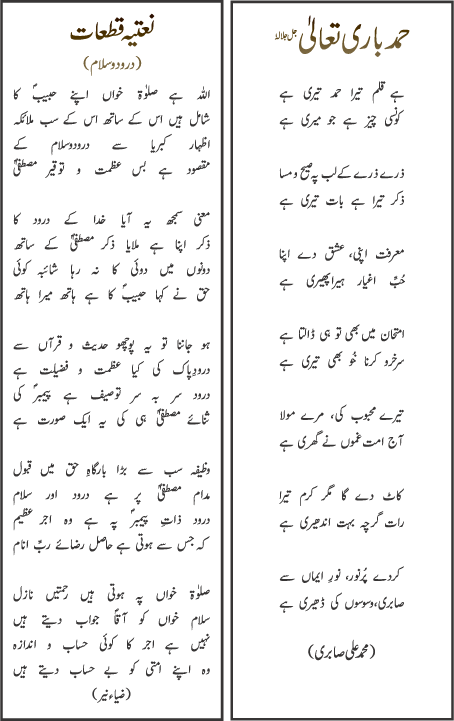 حمد باری تعالیٰ جل جلالہ
ہے قلم تیرا حمد تیری ہے
کونسی چیز ہے جو میری ہے
ذرے ذرے کے لب پہ صبح و مسا
ذکر تیرا ہے بات تیری ہے
معرفت اپنی، عشق دے اپنا
حُبِّ اغیار ہیرا پھیری ہے
امتحاں میں بھی تو ہی ڈالتا ہے
سرخرو کرنا خُو بھی تیری ہے
تیرے محبوب کی، مرے مولا
آج امت غموں نے گھری ہے
کاٹ دے گا مگر کرم تیرا
رات گرچہ بہت اندھیری ہے
کردے پُرنور، نورِ ایماں سے
صابری، وسوسوں کی ڈھیری ہے
(محمد علی صابری)
نعتیہ قطعات
(درود و سلام)
اللہ ہے صلوٰۃ خواں اپنے حبیبؐ کا
شامل ہیں اس کے ساتھ اس کے سب ملائکہ
اظہار کبریا سے درود و سلام کے
مقصود ہے بس عظمت و توقیر مصطفیؐ
معنی سمجھ یہ آیا خدا کے درود کا
ذکر اپنا ہے ملایا ذکر مصطفیؐ کے ساتھ
دونوں میں دوئی کا نہ رہا شائبہ کوئی
حق نے کہا حبیبؐ کا ہے ہاتھ میرا ہاتھ
ہو جاننا تو یہ پوچھو حدیث و قرآں سے
درودِ پاک کی کیا عظمت و فضیلت ہے
درود سر بہ سر توصیف ہے پیمبرؐ کی
ثنائے مصطفیؐ ہی کی یہ ایک صورت ہے
وظیفہ سب سے بڑا بارگاہِ حق میں قبول
مدام مصطفیؐ پر ہے درود اور سلام
درود ذاتِ پیمبرؐ پہ ہے وہ اجر عظیم
کہ جس سے ہوتی ہے حاصل رضائے ربِّ انام
صلوٰۃ خواں پہ ہوتی ہیں رحمتیں نازل
سلام خواں کو آقاؐ جواب دیتے ہیں
نہیں ہے اجر کا کوئی حساب و اندازہ
وہ اپنے امتی کو بے حساب دیتے ہیں
(ضیاء نیر)